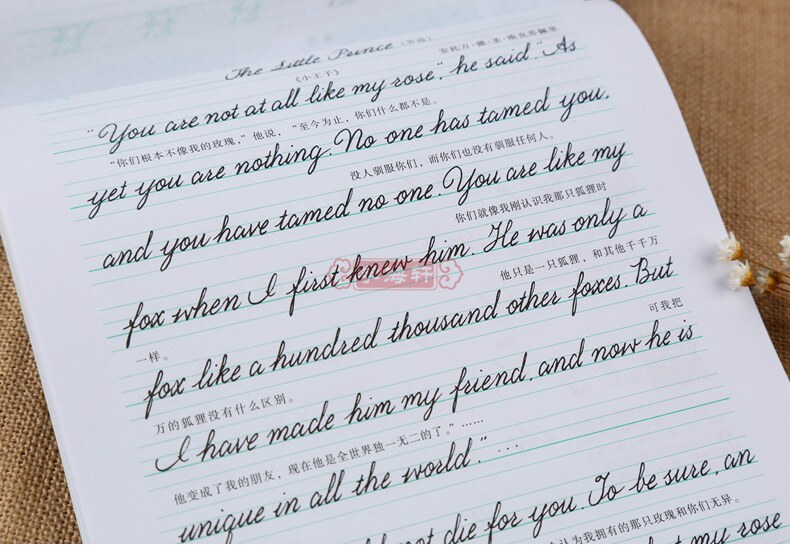 The Little Prince (节选)
《小王子》 安托万·德·圣-埃克苏佩里
"You are not at all like my rose", he said. "As
"你们根本不像我的玫瑰，"他说，"至今为止，你们什么都不是。
yet you are nothing. No one has tamed you,
没人驯服你们，而你们也没有驯服任何人。
and you have tamed no one. You are like my
你们就像我刚认识我那只狐狸时
fox when I first knew him. He was only a
一样。 他只是一只狐狸，和其他千千万
fox like a hundred thousand other foxes. But
万的狐狸没有什么区别。 可我把
I have made him my friend, and now he is
他变成了我的朋友，现在他是全世界独一无二的了。"……
unique in all the world." ...
not die for you. To be sure, an
认为我拥有的那只玫瑰和你们无异。
that my rose